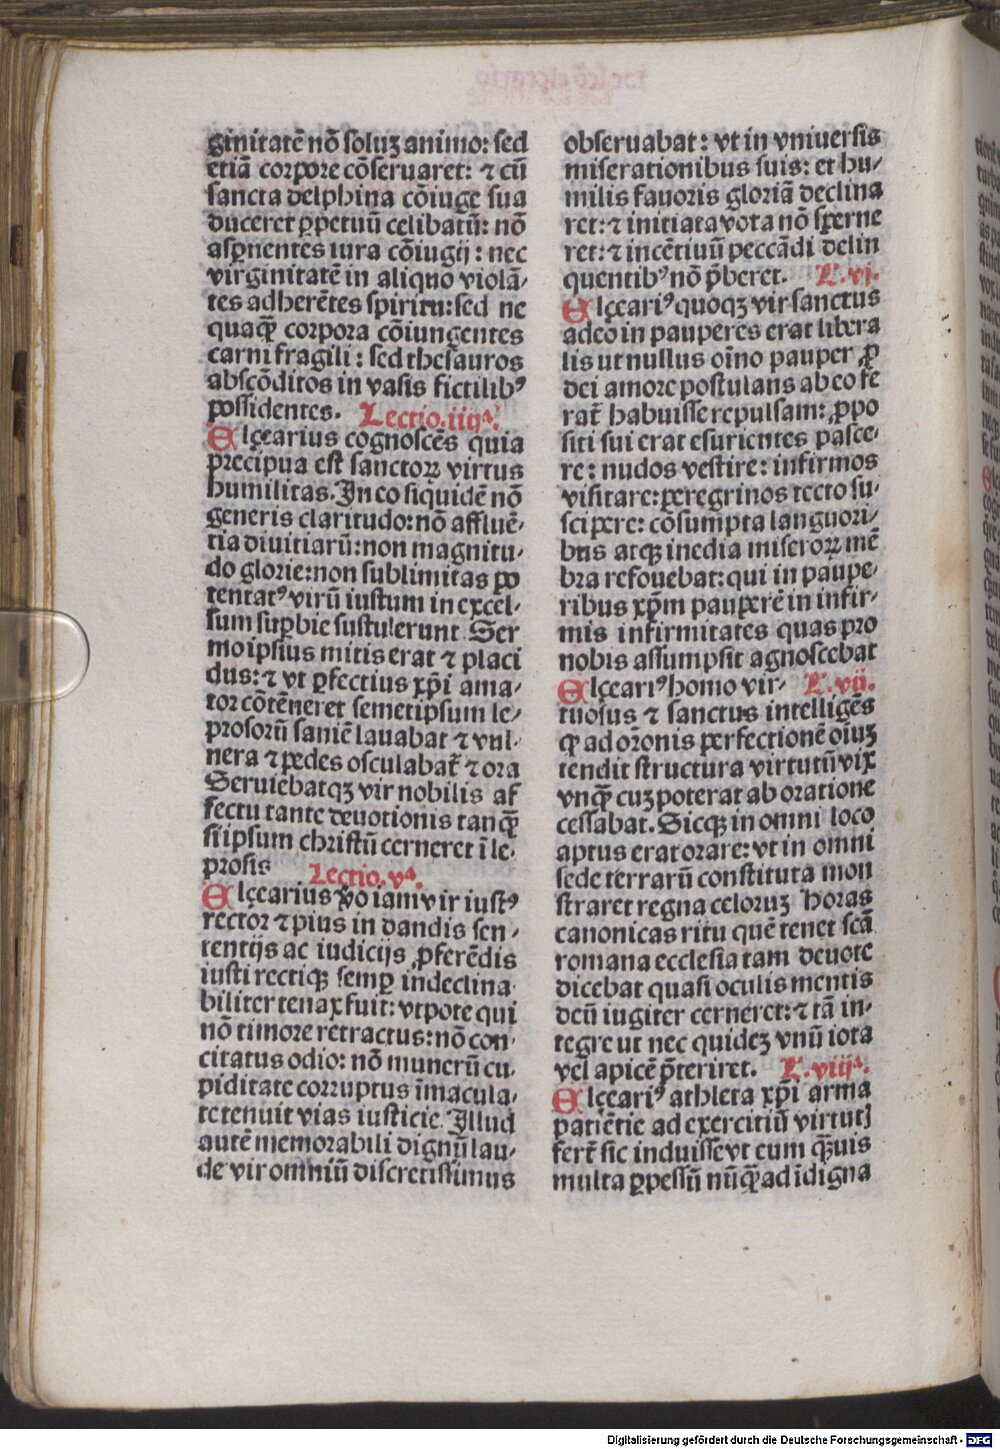 ginitatē nō soluꝫ animo: sed
etiā corpore cōseruaret: ⁊ cū
sancta delphina cōiuge sua
duceret ꝑpetuū celibatū: nō
asꝑnentes iura cōiugij: nec
virginitatē in aliquo violā-
tes adherētes spiritu: sed ne
quaꝙ̄ corpora cōiungentes
carni fragili: sed thesauros
abscōditos in vasis fictilibꝰ
possidentes. Lectio.iiijᵃ.
Elçearius cognoscēs quia
precipua est sanctoꝝ virtus
humilitas. In eo siquidē nō
generis claritudo: nō affluē-
tia diuitiarū: non magnitu-
do glorie: non sublimitas po
tentatꝰ virū iustum in excel-
sum suꝑbie sustulerunt. Ser
mo ipsius mitis erat ⁊ placi
dus: ⁊ vt ꝑfectius xp̄i ama-
tor cōtēneret semetipsum le-
prosorū saniē lauabat ⁊ vul-
nera ⁊ pedes osculabat̄ ⁊ ora
Seruiebatqꝫ vir nobilis af
fectu tante deuotionis tanꝙ̄
si ipsum christū cerneret ī le-
prosis Lectio.vᵃ.
Elçearius ꝟo iam vir iustꝰ
rector ⁊ pius in dandis sen-
tentijs ac iudicijs ꝓferēdis
iusti rectiqꝫ semꝑ indeclina
biliter tenax fuit: vtpote qui
nō timore retractus: nō con-
citatus odio: nō munerū cu-
piditate corruptus īmacula-
te tenuit vias iusticie. Illud
autē memorabili dignū lau-
de vir omniū discretissimus
obseruabat: vt in vniuersis
miserationibus suis: et hu-
milis fauoris gloriā declina
ret: ⁊ initiata vota nō sperne
ret: ⁊ incētiuū peccādi delin
quentibꝰ nō p̄beret. L.vj.
Elçeariꝰ quoqꝫ vir sanctus
adeo in pauperes erat libera
lis ut nullus oīno pauper ꝓ
dei amore postulans ab eo fe
rat̄ habuisse repulsam: ꝓpo
siti sui erat esurientes pasce-
re: nudos vestire: infirmos
visitare: peregrinos tecto su-
scipere: cōsumpta languori-
bus atqꝫ inedia miseroꝝ mē
bra refouebat: qui in paupe-
ribus xp̄m pauperē in infir-
mis infirmitates quas pro
nobis assumpsit agnoscebat
Elçeariꝰ homo vir- L.vij.
tuosus ⁊ sanctus intelligēs
ꝙ ad or̄onis perfectionē oīuꝫ
tendit structura virtutū vix
vnꝙ̄ cuꝫ poterat ab oratione
cessabat. Sicqꝫ in omni loco
aptus erat orare: vt in omni
sede terrarū constituta mon
straret regna celoruꝫ Horas
canonicas ritu quē tenet scā
romana ecclesia tam deuote
dicebat quasi oculis mentis
deū iugiter cerneret: ⁊ tā in-
tegre ut nec quideꝫ vnū iota
vel apicē p̄teriret. L.viijᵃ.
Elçeariꝰ athleta xp̄i arma
patiētie ad exercitiū virtutꝭ
fert̄ sic induisse vt cum ꝙ̄uis
multa ꝑpessū nūꝙ̄ ad īdigna
Digitalisierung gefördert durch die Deutsche Forschungsgemeinschaft - DFG